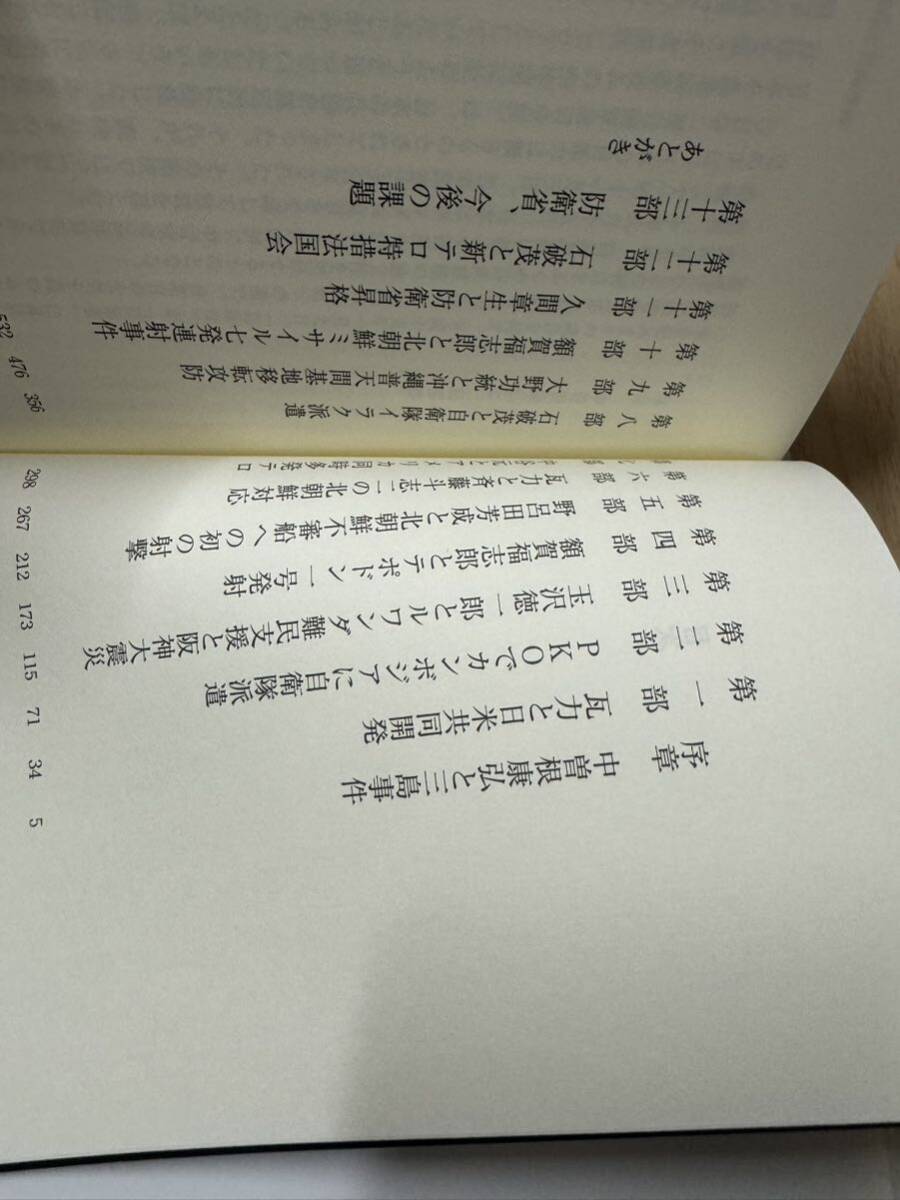 序章 中曽根康弘と三島事件 5
第一部 瓦力と日米共同開発 34
第二部 PKOでカンボジアに自衛隊派遣 71
第三部 玉沢徳一郎とルワンダ難民支援と阪神大震災 115
第四部 額賀福志郎とテポドン一号発射 173
第五部 野呂田芳成と北朝鮮不審船への初の射撃 212
第六部 瓦力と斉藤斗志二の北朝鮮対応 267
とアメリカ同時多発テロ 298
第八部 石破茂と自衛隊イラク派遣 356
第九部 大野功統と沖縄普天間基地移転攻防 476
第十部 額賀福志郎と北朝鮮ミサイル七発連射事件 532
第十一部 久間章生と防衛省昇格
第十二部 石破茂と新テロ特措法国会
第十三部 防衛省、今後の課題
あとがき